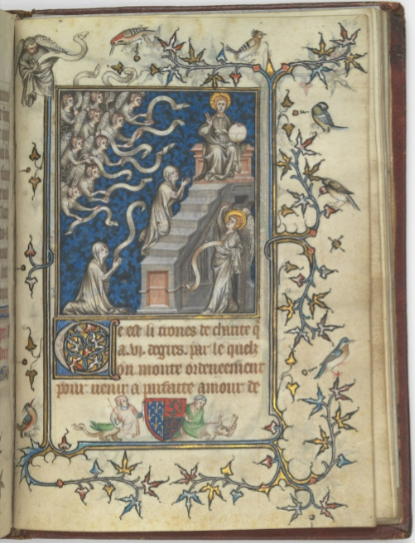 Cest li trones de charite q
a .vj. degres. par le quelz
on monte ordeneement
pour uenir a parfaite amour de